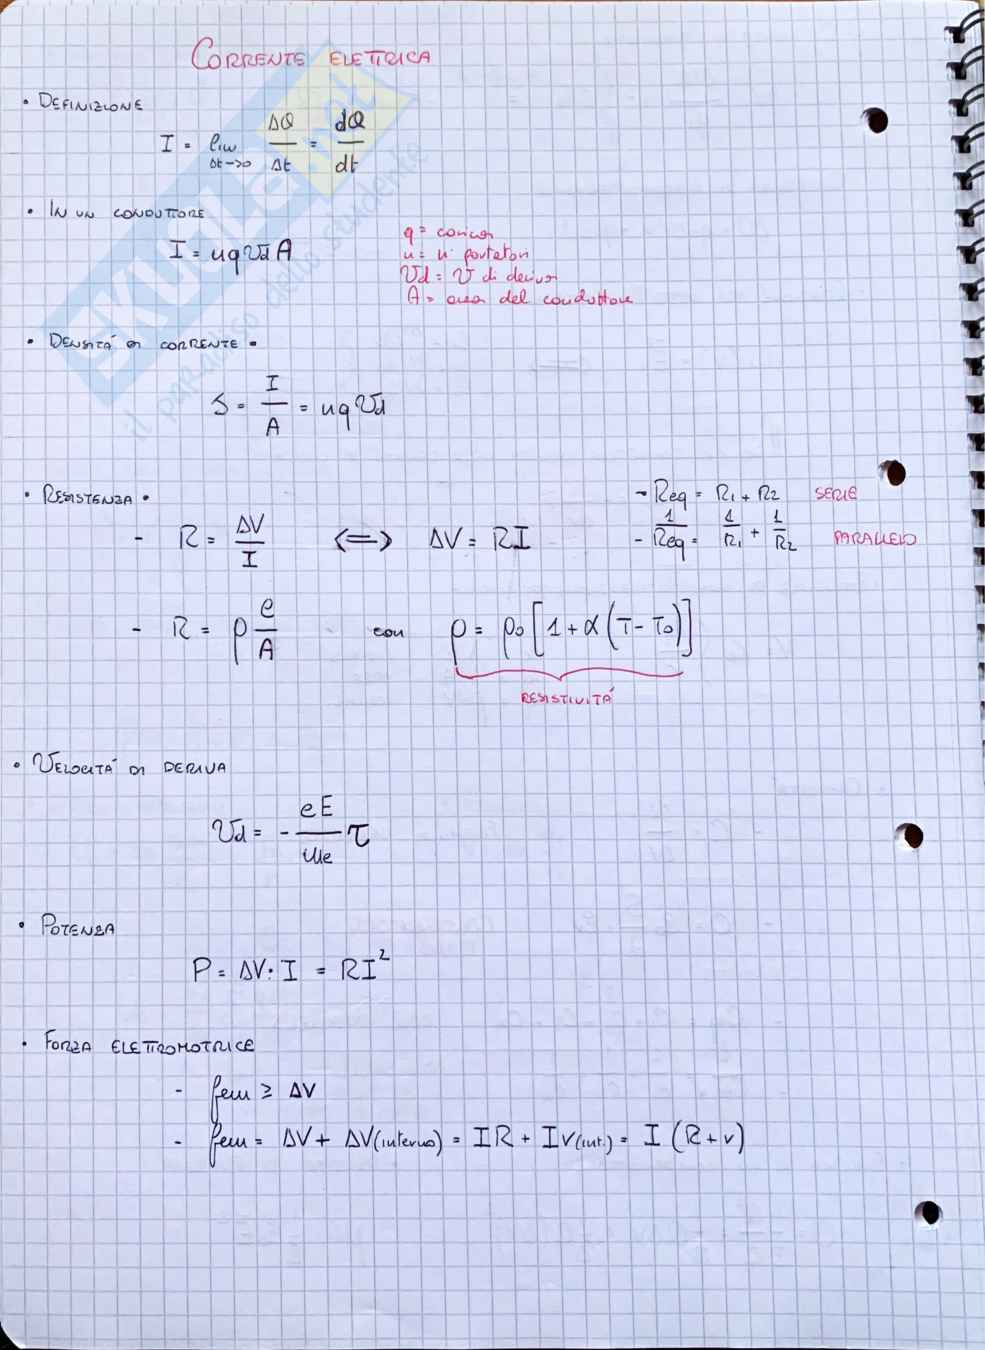 CORRENTE ELETTRICA
• DEFINIZIONE
I = lim Δt->0 ΔQ/Δt = dQ/dt
• IN UN CONDUTTORE
I = nqVdA
q = carica
n = n° portatori
Vd = V di deriva
A = area del conduttore
• DENSITÁ DI CORRENTE •
J = I/A = nqVd
• RESISTENZA •
- R = ΔV/I <=> ΔV = RI
- Req = R1 + R2 SERIE
- 1/Req = 1/R1 + 1/R2 PARALLELO
- R = ρ l/A con ρ = ρ0[1 + α(T - T0)]
RESISTIVITÁ
• VELOCITÁ DI DERIVA
Vd = - eE/me τ
• POTENZA
P = ΔV · I = RI²
• FORZA ELETTROMOTRICE
- fem ≥ ΔV
- fem = ΔV + ΔV(interno) = IR + Ir(int.) = I (R + r)
SKUOLA.net
il paradiso dello studente